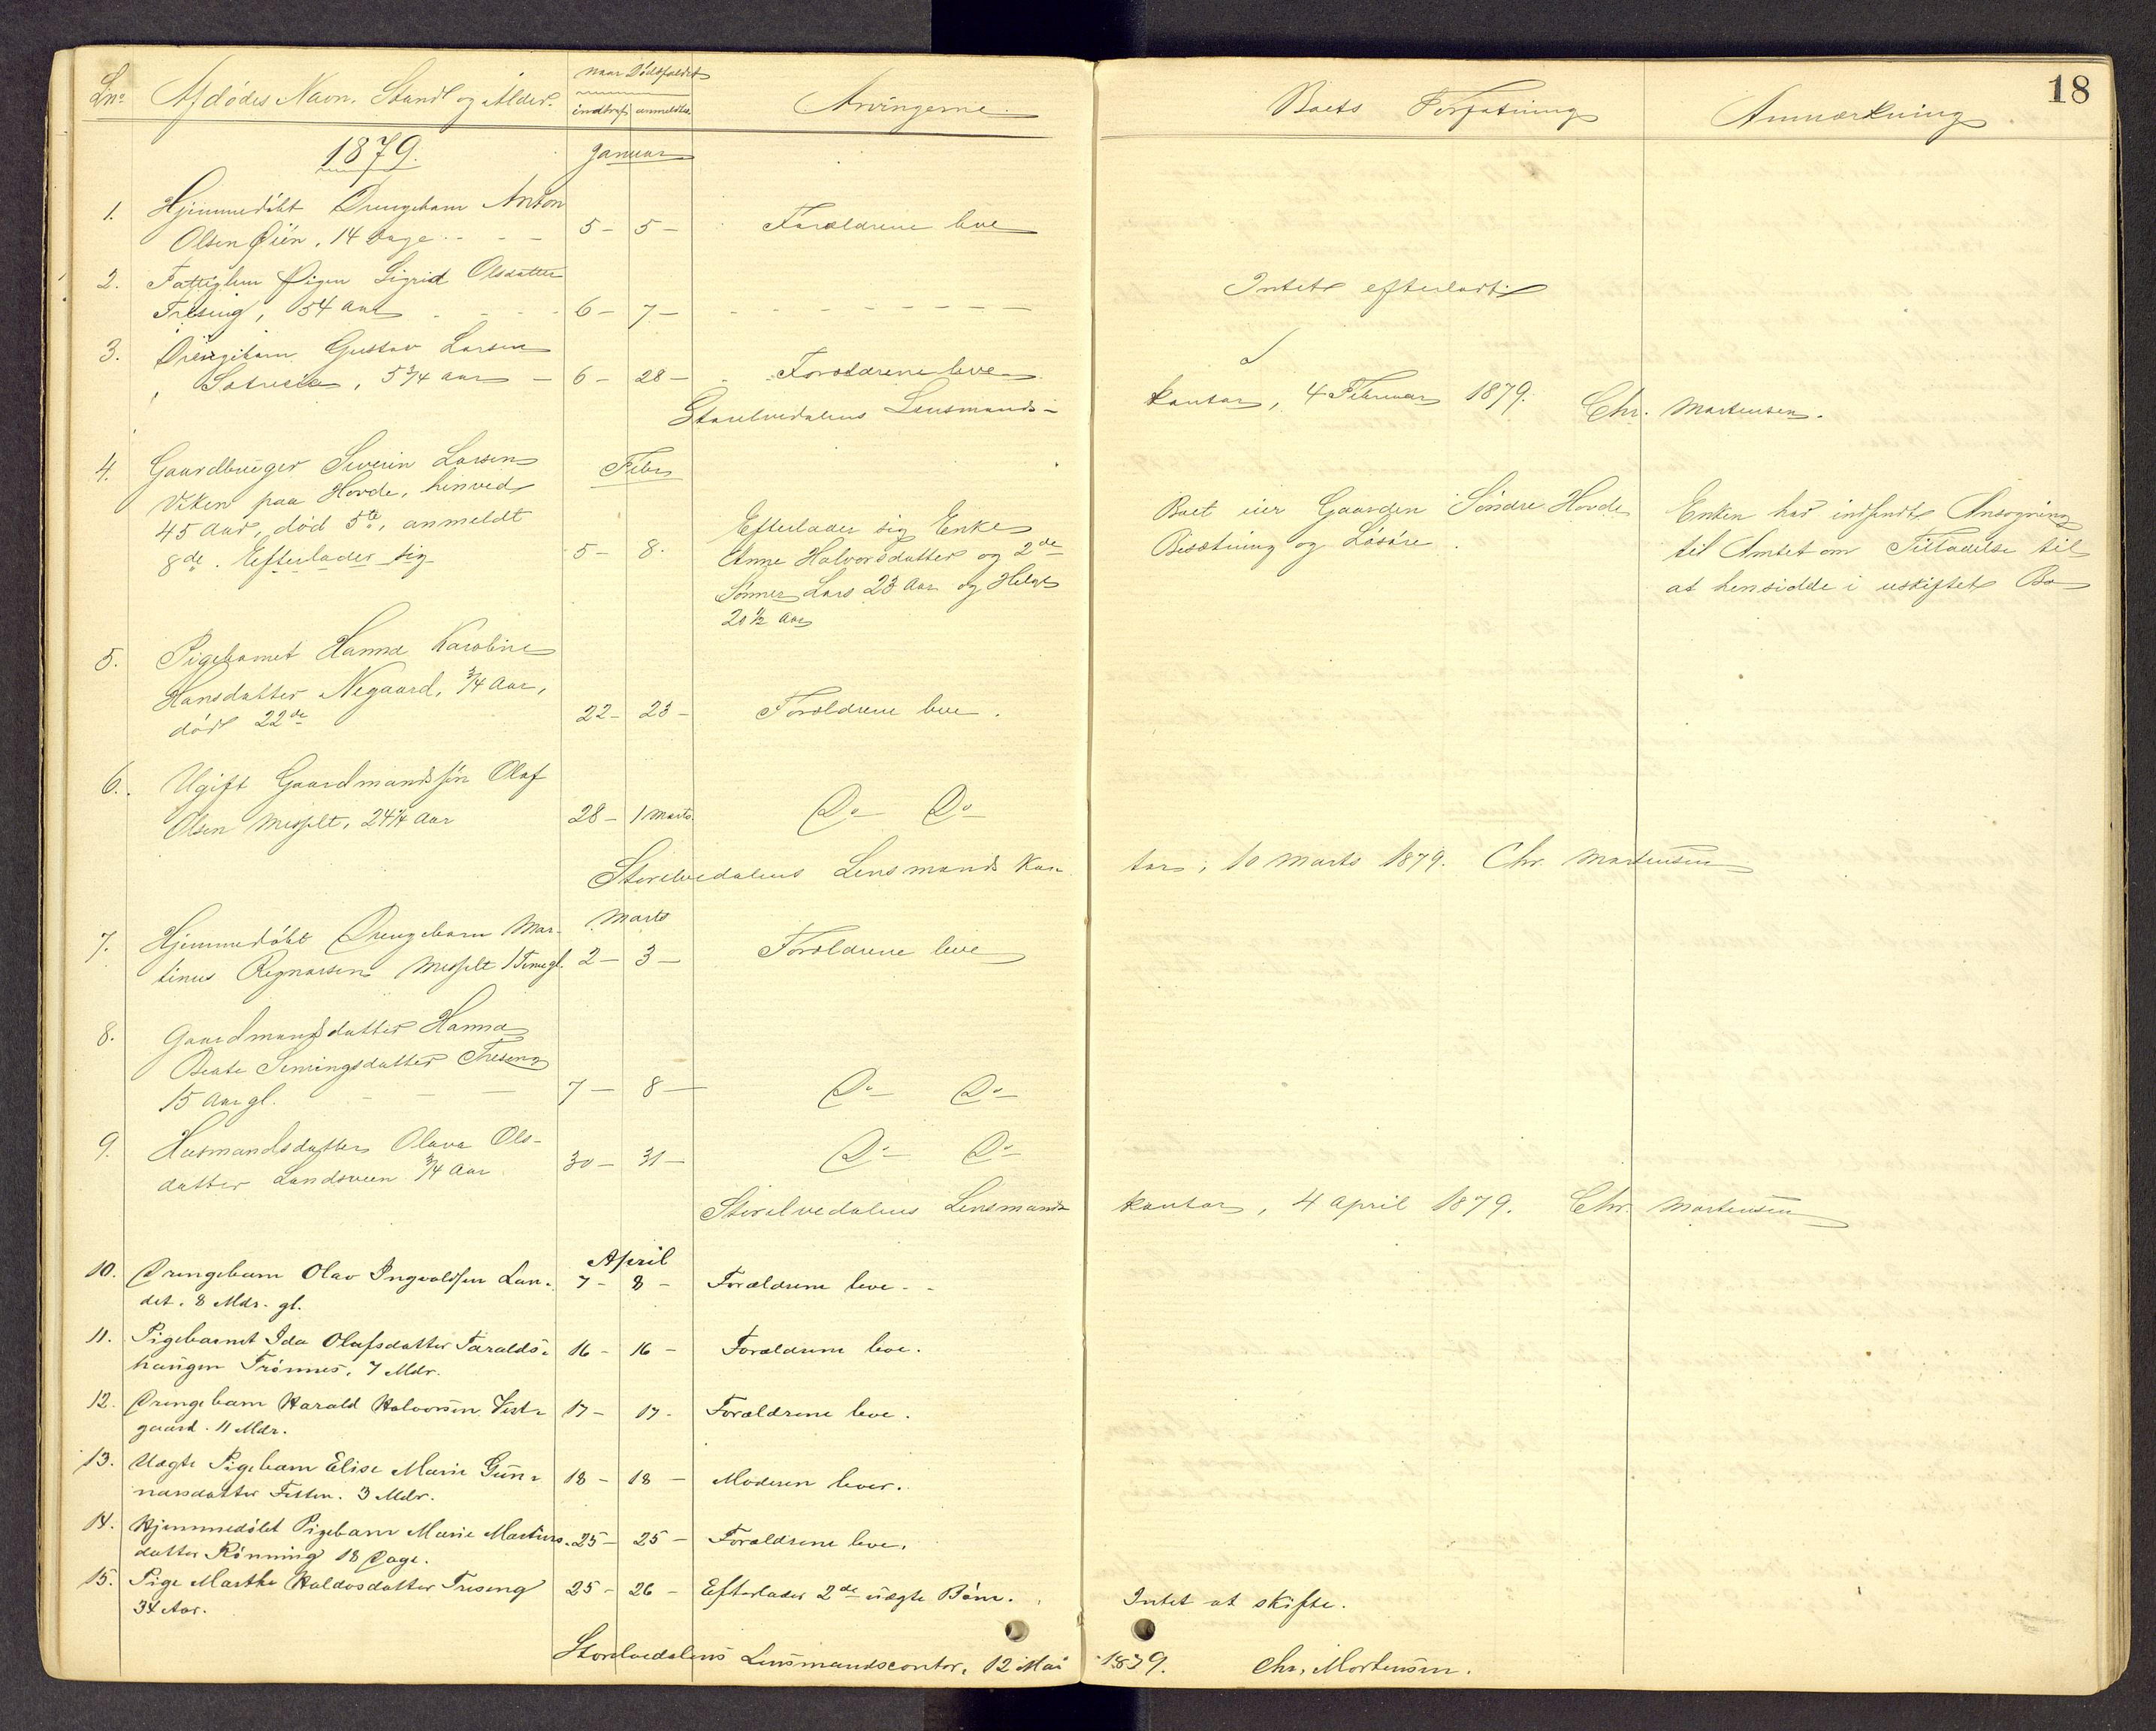 18
Lno Afdødes Navn, Stand og Alder. naar Dødsfaldet Arvingerne Boets Forfatning Anmærkning
indtraf anmeldtes
1879. Januar
1. Hjemmedøbt Drengebarn Anton
Olsen Øien, 14 Dage - - - 5 - 5 - Forældrene leve
2. Fattiglem Pigen Sigrid Olsdatter
Treseng, 54 Aar - - - 6 - 7 - - - - - - - - Intet efterladt
3. Drengebarn Gustav Larsen
5 3/4 aar - 6 - 28 - Forældrene leve
Storelvedalens Lensmands- kontor, 4 Februar 1879. Chr. Mortensen.
4. Gaardbruger Severin Larsen Febr
Viken paa Hovde, henved
45 Aar, død 5te, anmeldt
8de. Efterlader sig 5 - 8. Efterlader sig Enke
Anne Halvorsdatter og 2de
Sønner Lars 23 Aar og Helge
20 1/2 Aar
Boet eier Gaarden Søndre Hovde
Besætning og Løsøre.
Enken har indsendt Ansøgning
til Amtet om Tilladelse til
at hensidde i uskiftet Bo
5. Pigebarnet Hanna Karoline
Hansdatter Negaard, 3/4 Aar,
død 22de 22 - 23 - Forældrene leve.
6. Ugift Gaardmandssøn Olaf
Olsen Messelt, 24 1/4 Aar 28 - 1 Marts. Do Do
Storelvedalens Lensmands Kon- tor, 10 Marts 1879. Chr. Mortensen
Marts
7. Hjemmedøbt Drengebarn Mar-
tinus Regnarsen Messelt 1 Time gl. 2 - 3 - Forældrene leve
8. Gaardmandsdatter Hanna
Beate Simingsdatter Treseng
15 Aar gl. - - - 7 - 8 - Do Do
9. Husmandsdatter Olava Ols-
datter Landsveen 3/4 Aar 30 - 31 - Do Do
Storelvedalens Lensmands kontor, 4 April 1879. Chr. Mortensen
April
10. Drengebarn Olav Ingvaldsen Lan- 7 - 8 - Forældrene leve - -
det. 8 Mdr. gl.
11. Pigebarnet Ida Olufsdatter Taralds- 16 - 16 - Forældrene leve.
haugen Trønnes, 7 Mdr.
12. Drengebarn Harald Halvorsen Vest- 17 - 17 - Forældrene leve.
gaard. 11 Mdr.
13. Uægte Pigebarn Elise Marie Gun- 18 - 18 - Moderen lever.
narsdatter Fetten. 3 Mdr.
14. Hjemmedøbt Pigebarn Marie Martins- 25 - 25 - Forældrene leve.
datter Rønning 18 Dage.
15. Pige Marthe Haldosdatter Treseng 25 - 26 - Efterlader 2de uægte Børn. Intet at skifte.
34 Aar.
Storelvedalens Lensmandscontor, 12 Mai 1879. Chr. Mortensen.